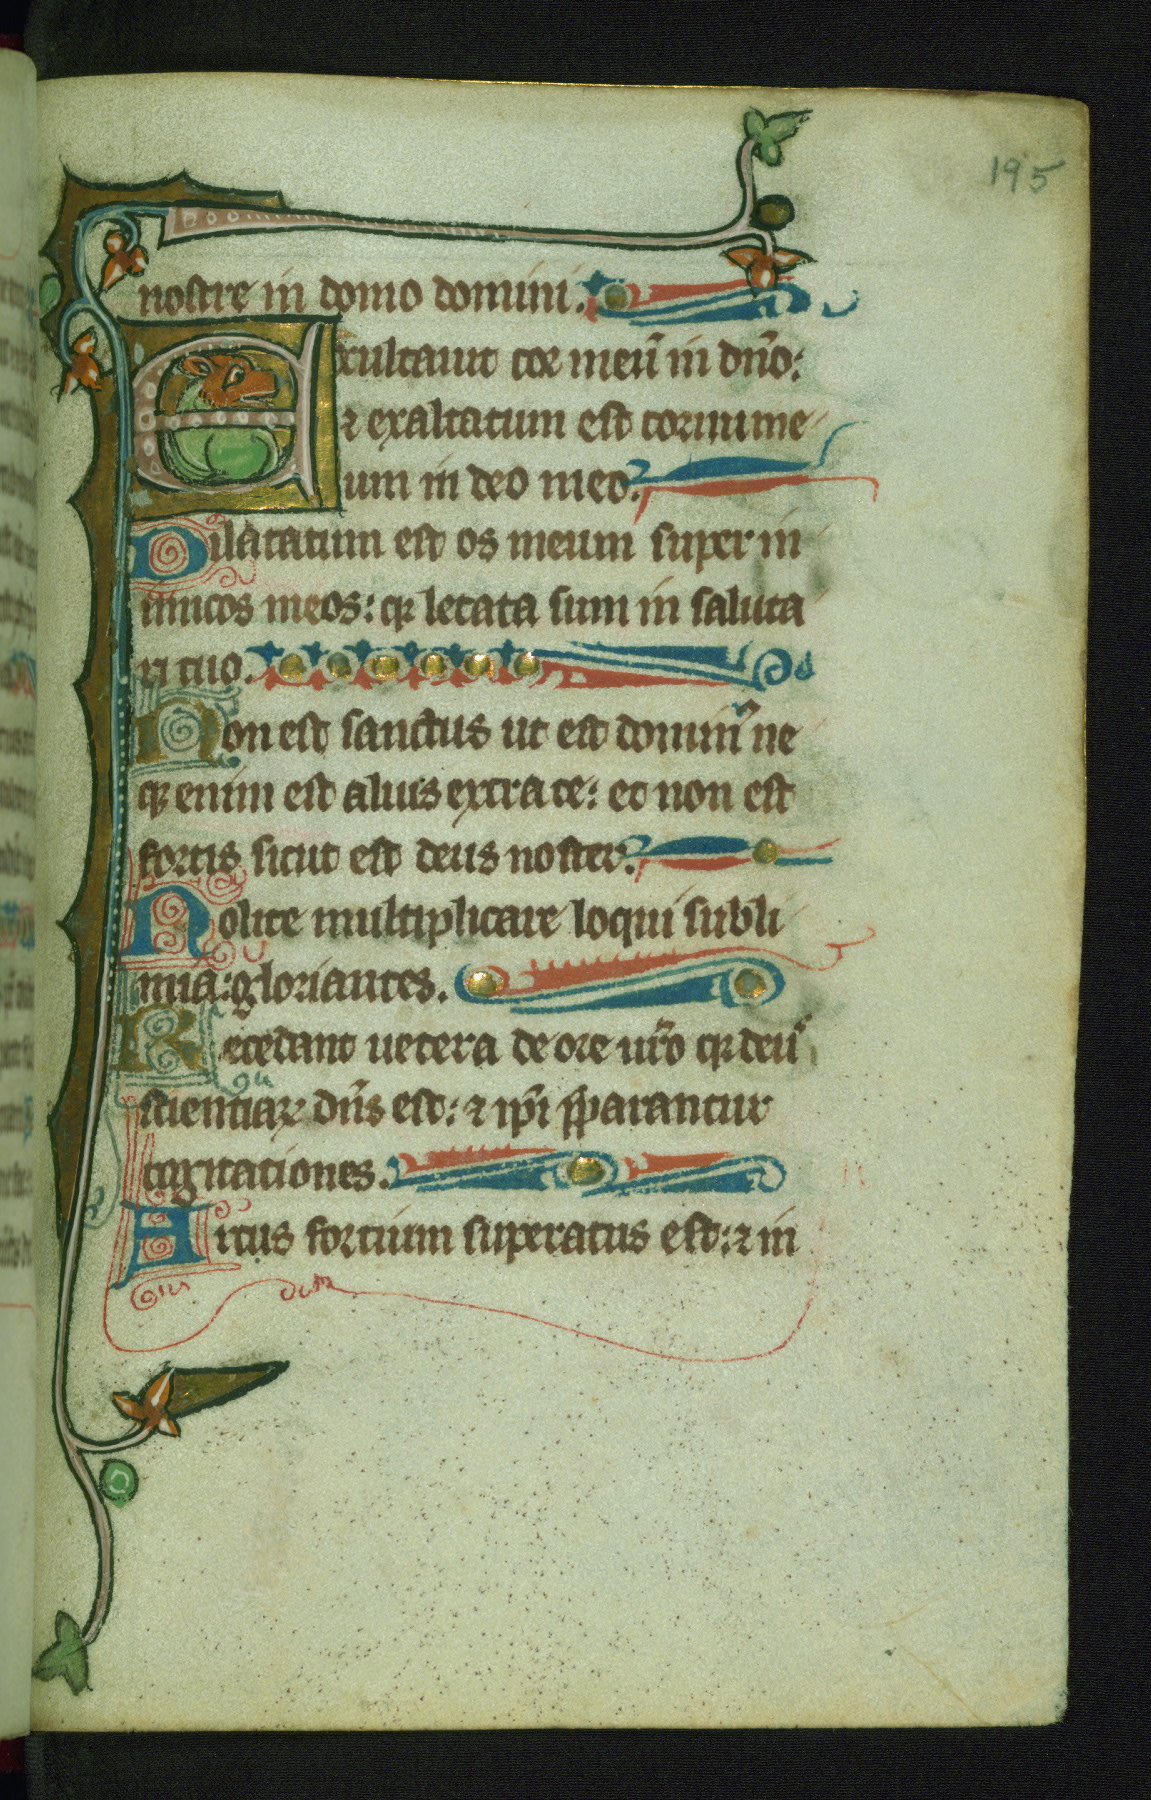 195
nostre in domo domini.
Exultauit cor meū in dn̄o:
⁊ exaltatum est cornu me
um in deo meo.
Dilatatum est os meum super in
imicos meos: qr letata sum in saluta
ri tuo.
Non est sanctus ut est dominꝰ ne
qꝫ enim est alius extra te: et non est
fortis sicut est deus noster.
Nolite multiplicare loqui subli
mia: gloriantes.
Recedant uetera de ore ur̄o qr deus
scientiaꝝ dn̄s est: ⁊ ip̄i p̄parantur
cogitationes.
Arcus fortium superatus est: ⁊ in